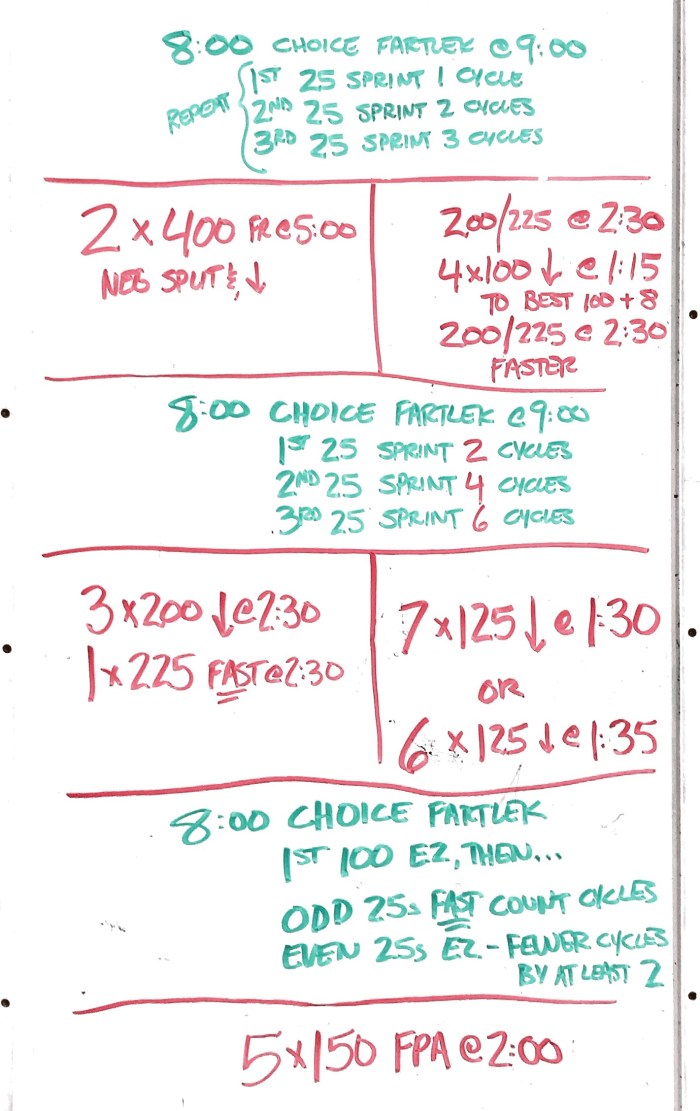 8:00 CHOICE FARTLEK @ 9:00
REPEAT
1ST 25 SPRINT 1 CYCLE
2ND 25 SPRINT 2 CYCLES
3RD 25 SPRINT 3 CYCLES
2 x 400 FR @ 5:00
NEG SPLIT & ↓
200/225 @ 2:30
4x100 ↓ @ 1:15
TO BEST 100 + 8
200/225 @ 2:30
FASTER
8:00 CHOICE FARTLEK @ 9:00
1ST 25 SPRINT 2 CYCLES
2ND 25 SPRINT 4 CYCLES
3RD 25 SPRINT 6 CYCLES
3 x 200 ↓ @ 2:30
1 x 225 FAST @ 2:30
7 x 125 ↓ @ 1:30
OR
6 x 125 ↓ @ 1:35
8:00 CHOICE FARTLEK
1ST 100 EZ, THEN...
ODD 25s FAST COUNT CYCLES
EVEN 25s EZ - FEWER CYCLES
BY AT LEAST 2
5 x 150 FPA @ 2:00